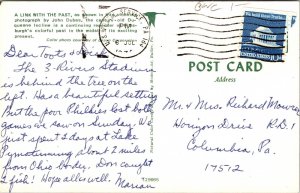 A LINK WITH THE PAST, is shown in this
photograph by John Dubas, the
quesne Incline is a continuing reminder of
burgh's colorful past in the midst of its exciting
PM
8 JUL
Dear Toots & Dick
The 3-Rivers Stadium
is behind the tree on the
left. Have beautiful setting
But the poor Phillies lost both
games we saw on Sunday. We
just spent 2 days at Lake
Pymatuning about 2 miles
from Ohio Border. Don caught
1 fish! Hope all is well. Marian
POST CARD
Address
Mr. & Mrs. Richard Mowrer
Horizon Drive R.D. 1
Columbia, Pa.
17512